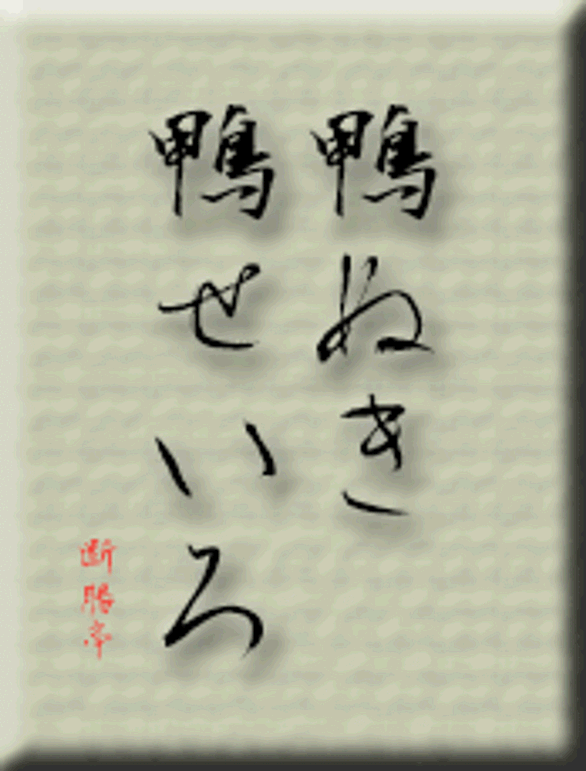 鴨ぬき
鴨せいろ
断腸亭